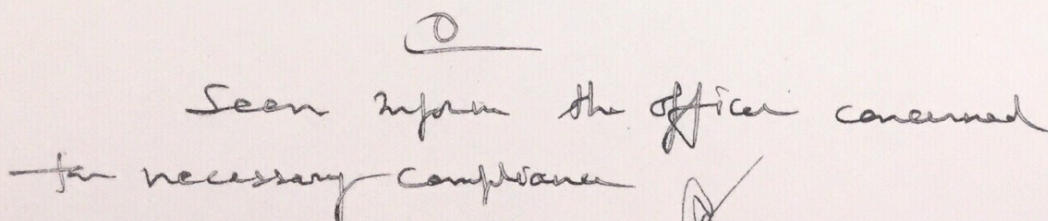 Seen inform the officer concerned
for necessary compliance